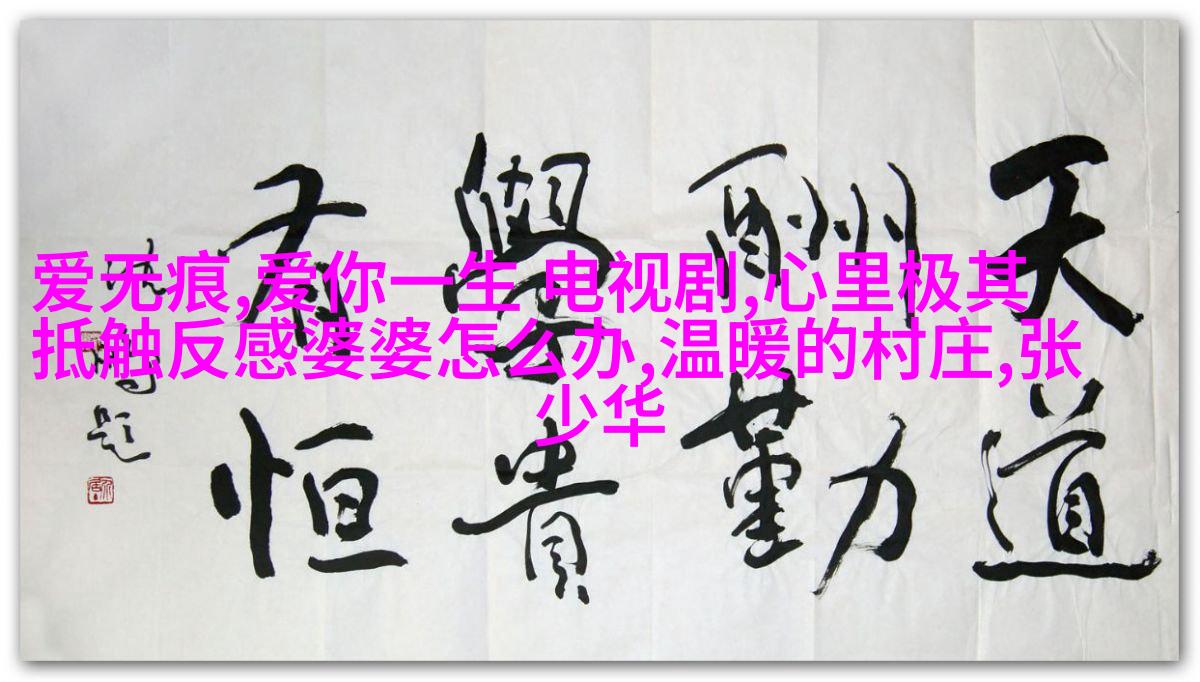 天道
酬勤
学贵
有恒
爱无痕,爱你一生 电视剧,心里极其
抵触反感婆婆怎么办,温暖的村庄,张
少华